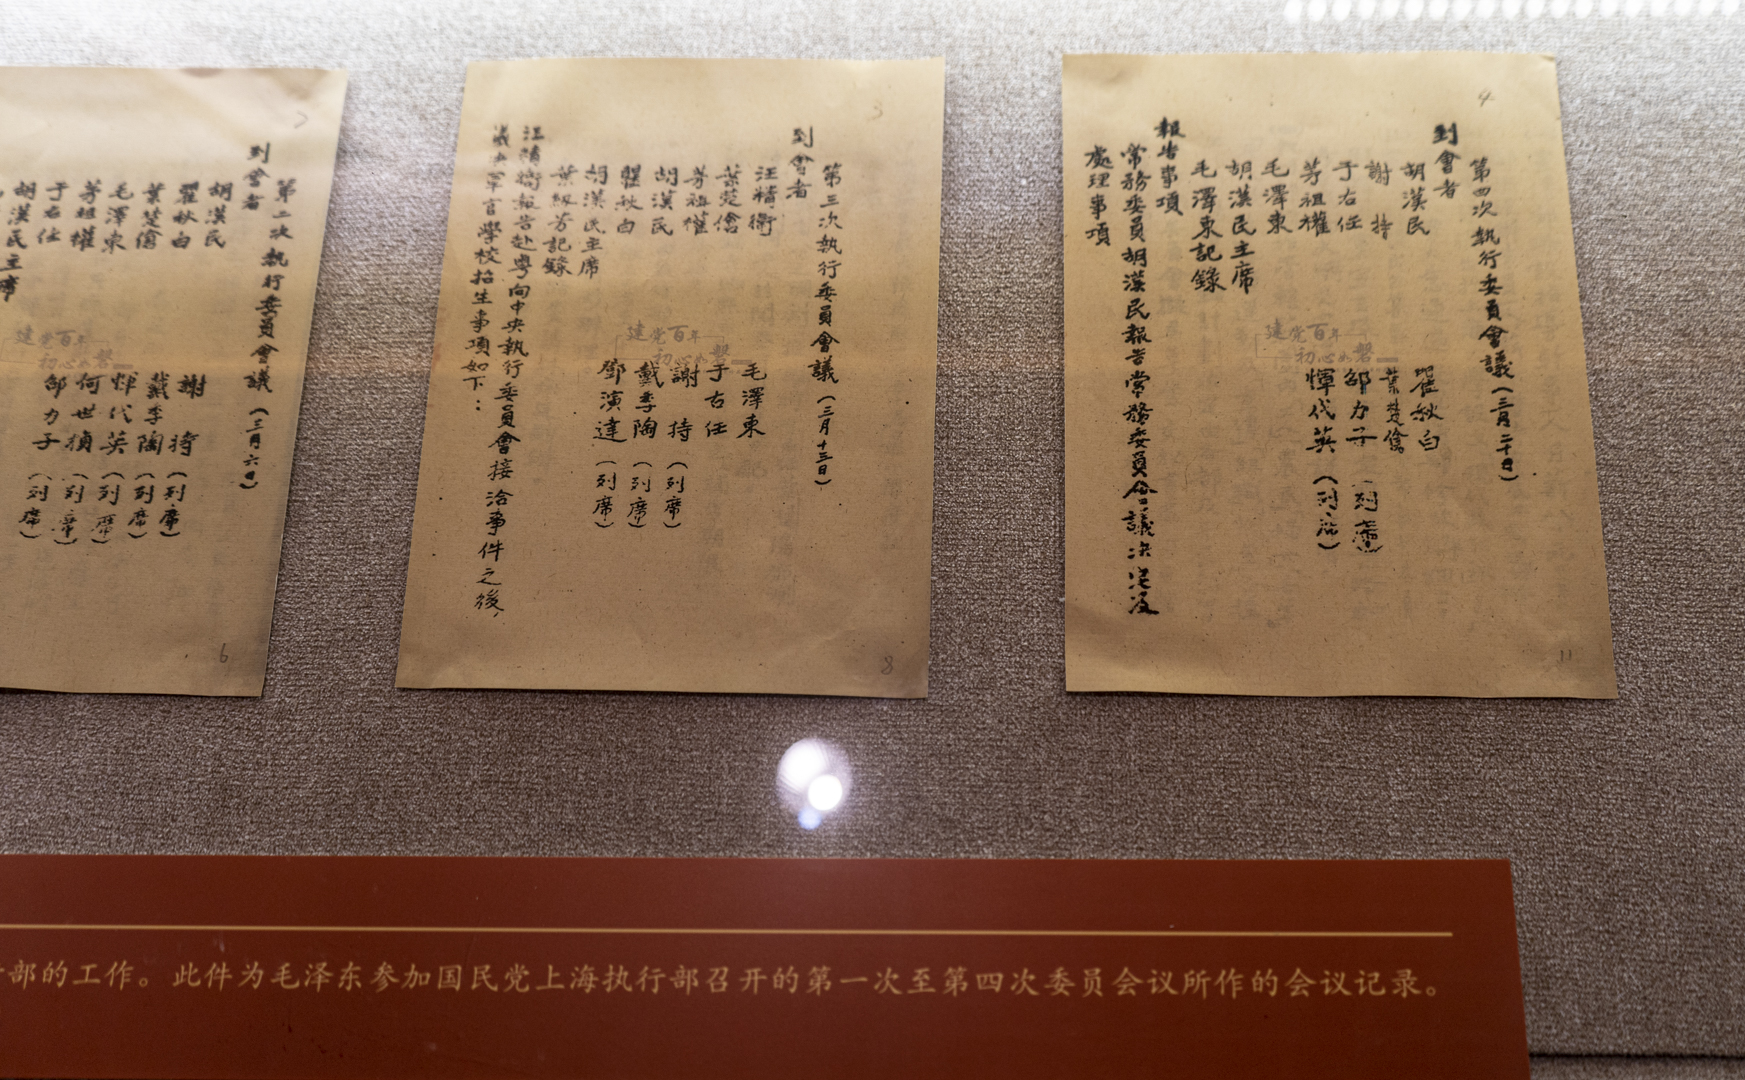 2
到會者
第二次執行委員會議(三月六日)
胡漢民
瞿秋白
葉楚傖
毛澤東
茅祖權
于右任
胡漢民主席
謝持(列席)
戴季陶(列席)
惲代英(列席)
何世楨(列席)
邵力子(列席)
6
3
第三次執行委員會議(三月十三日)
到會者
汪精衛
葉楚傖
茅祖權
胡漢民
瞿秋白
毛澤東
于右任
謝持(列席)
戴季陶(列席)
鄧演達(列席)
胡漢民主席
葉紉芳記錄
汪精衛報告赴粵向中央執行委員會接洽事件之後,
議決軍官學校招生事項如下:
8
4
第四次執行委員會議(三月二十日)
到會者
胡漢民
謝持
于右任
茅祖權
毛澤東
瞿秋白
葉楚傖
邵力子(列席)
惲代英(列席)
胡漢民主席
毛澤東記錄
報告事項
常務委員胡漢民報告常務委員會議決定及
處理事項
11
建党百年
初心如磐
建党百年
初心如磐
建党百年
初心如磐
部的工作。此件为毛泽东参加国民党上海执行部召开的第一次至第四次委员会议所作的会议记录。